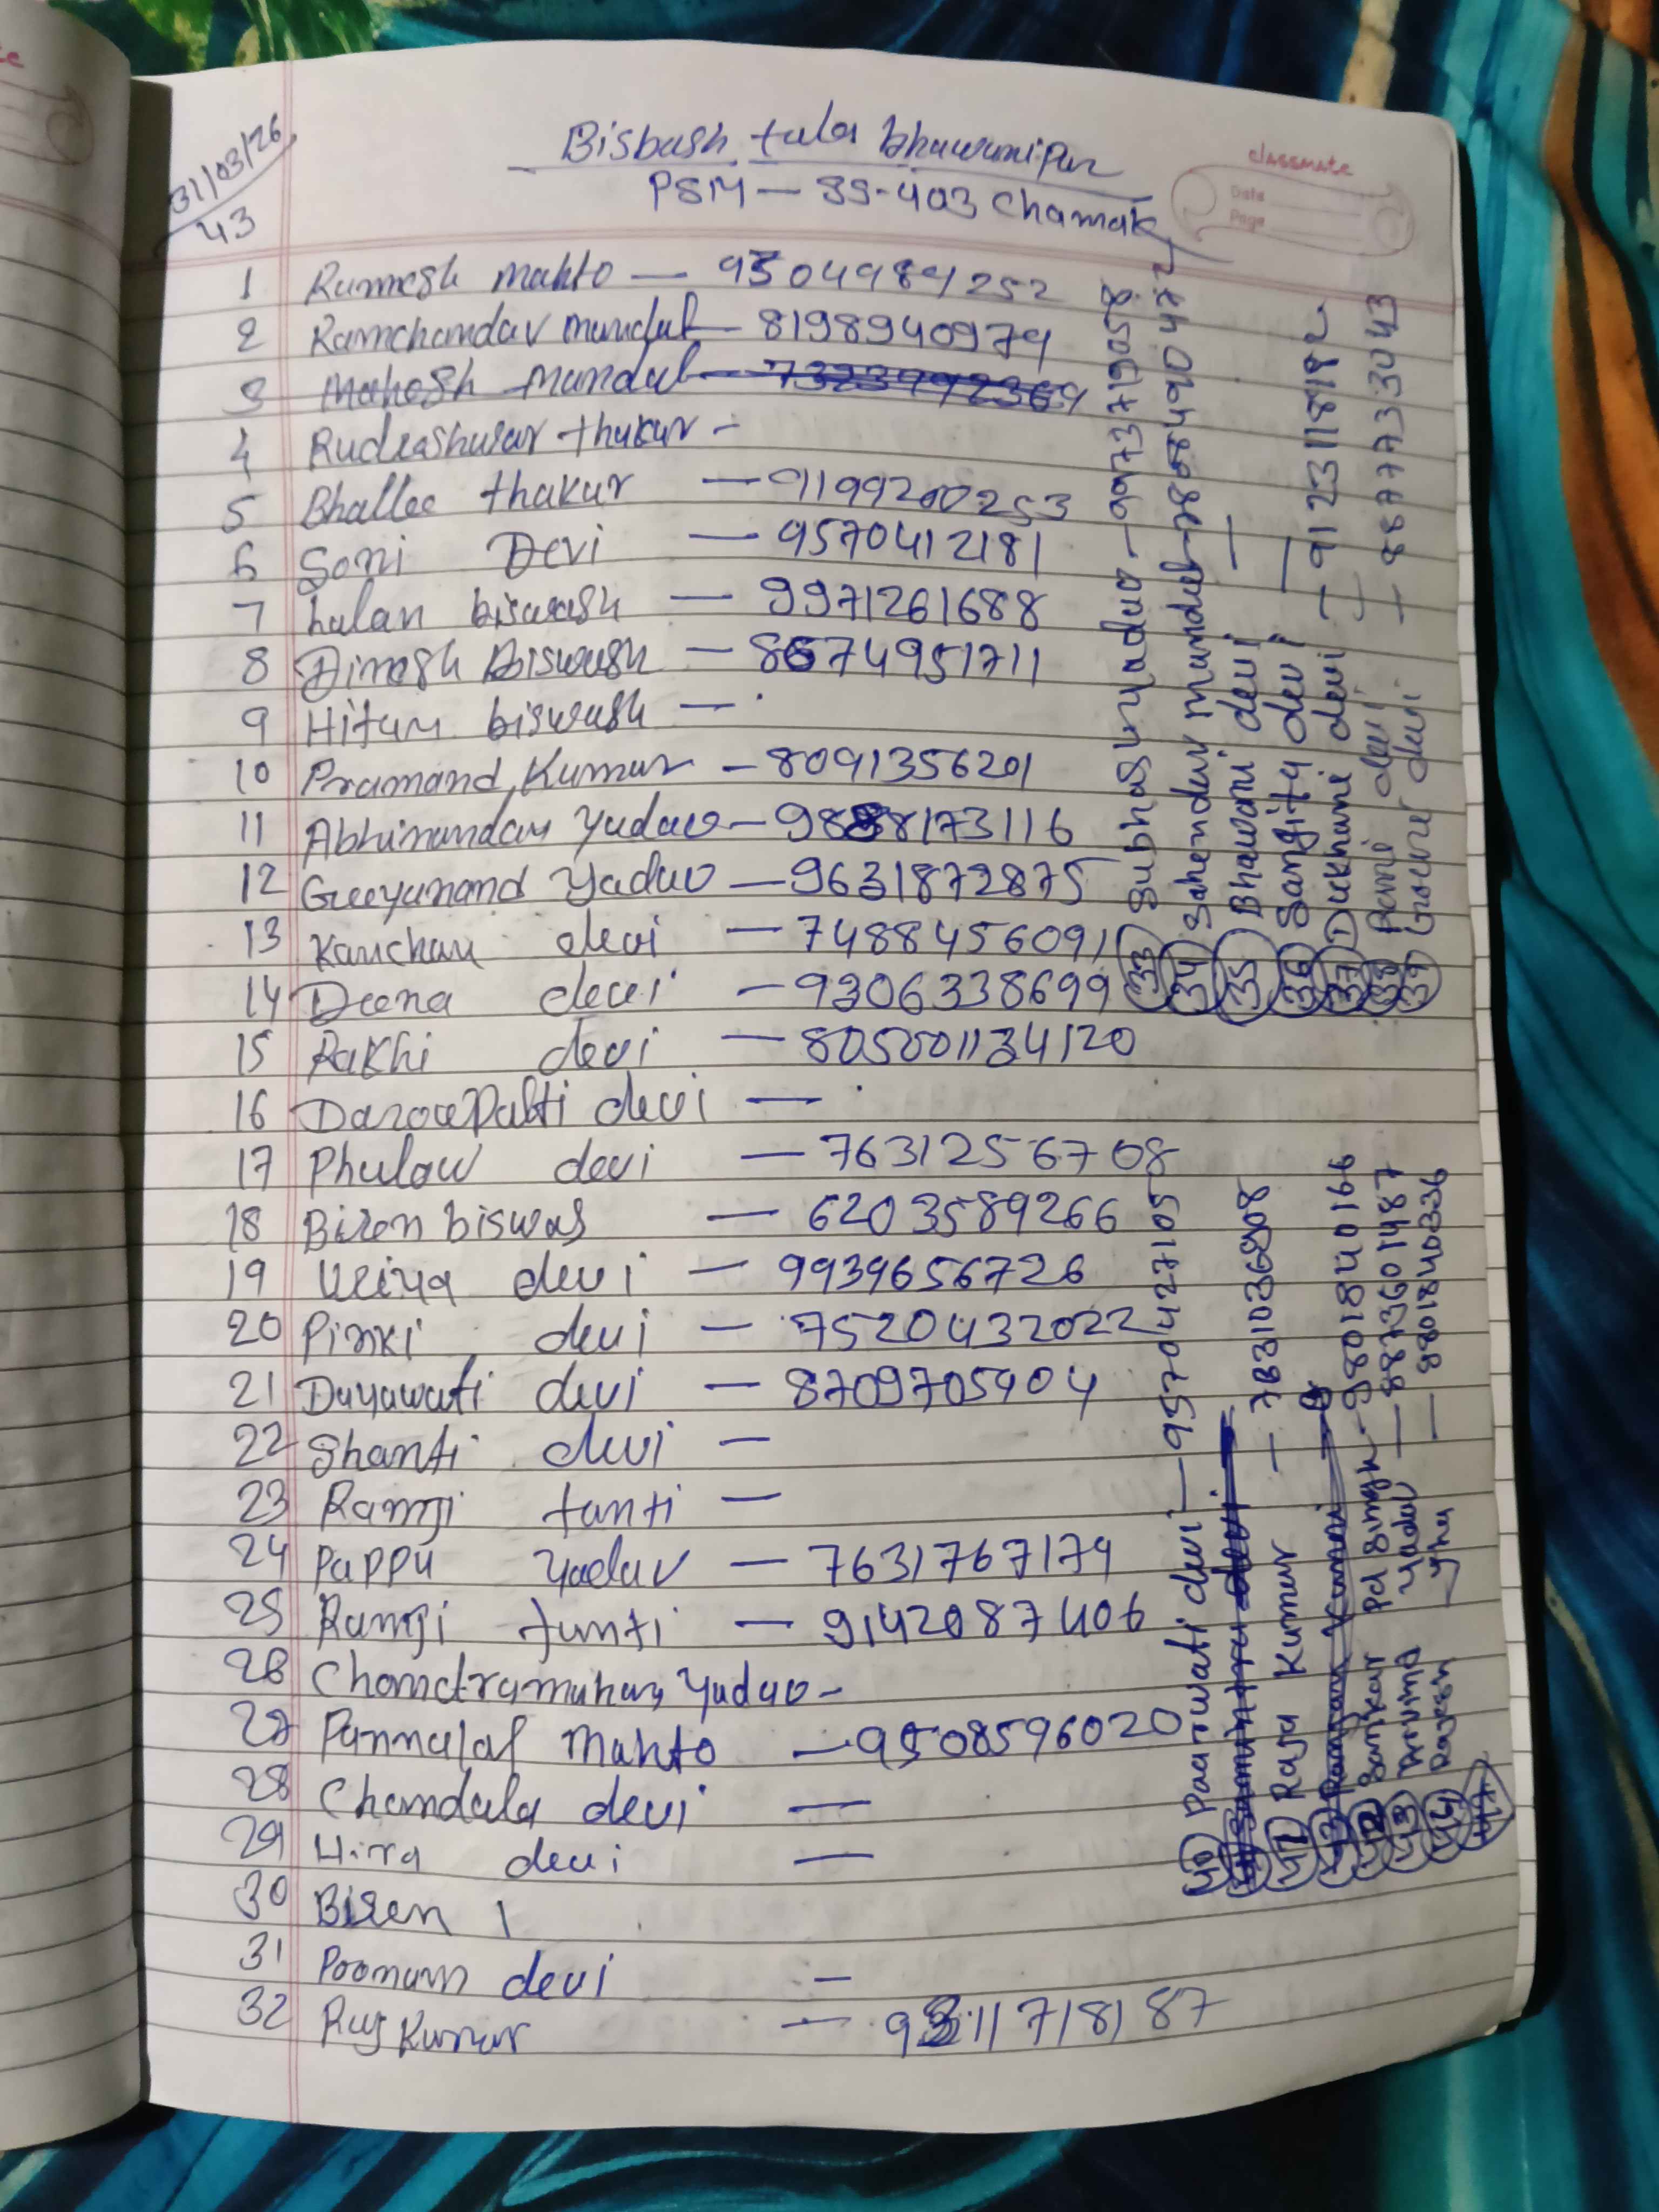 31/03/26
43
Bisbash tula bhawanipur
PSM — SS-403 Chamak
classmate
Date
Page
1 Ramesh mahto — 9304984252
2 Ramchandav mandal — 8198940974
3 Mahesh mandal — 7323992369
4 Rudrashwar thakur -
5 Bhallee thakur — 9199200253
6 Soni Devi — 9570412181
7 Lalan biswash — 9971261688
8 Dinesh Biswash — 8674951711
9 Hitan biswash —
10 Pramand Kumar - 8091356201
11 Abhinandan Yadav - 9888173116
12 Geeyanand Yadav — 9631872875
13 Kanchan devi — 7488456091
14 Deena devi — 9306338699
15 Rakhi devi — 805001134120
16 devi —
17 Phulow devi — 7631256708
18 Biren biswas — 6203589266
19 devi — 9939656726
20 Pinki devi — 7520432022
21 Dayawati devi — 8709705904
22 Shanti devi —
23 Ramji tanti —
24 Pappu Yadav — 7631767179
25 Ramji tanti — 9142087406
26 Chandramohan Yadav -
27 Pannalal Mahto — 9508596020
28 Chandala devi —
29 Hira devi —
30 Biren 1
31 Poonam devi —
32 Raj Kumar — 9311718187
33 Subhash yadav — 9973719058
34 Sahendar mandal - 7808490472
35 Bhawani devi —
36 Sangita devi —
37 Dukhani devi — 9123118182
38 Rani devi —
39 devi — 8877733043
40 Parwati devi — 9570427105
devi
41 Raju Kumar — 7631036908
43 Ranjan Kumari
42 Sankar Pd Singh - 9801840166
43 Arvind Yadav — 8873601487
44 Rajesh — 9801840336